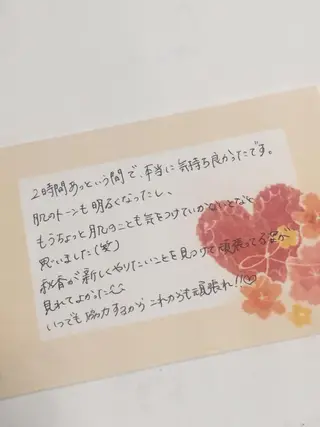 2時間あっという間で、本当に気持ち良かったです。
肌のトーンも明るくなったし、
もうちょっと肌のことも気をつけていかないとなと
思いました(笑)
が新しくやりたいことを見つけて頑張ってる姿が
見れてよかった
いつでも協力するからこれからも頑張れ!!